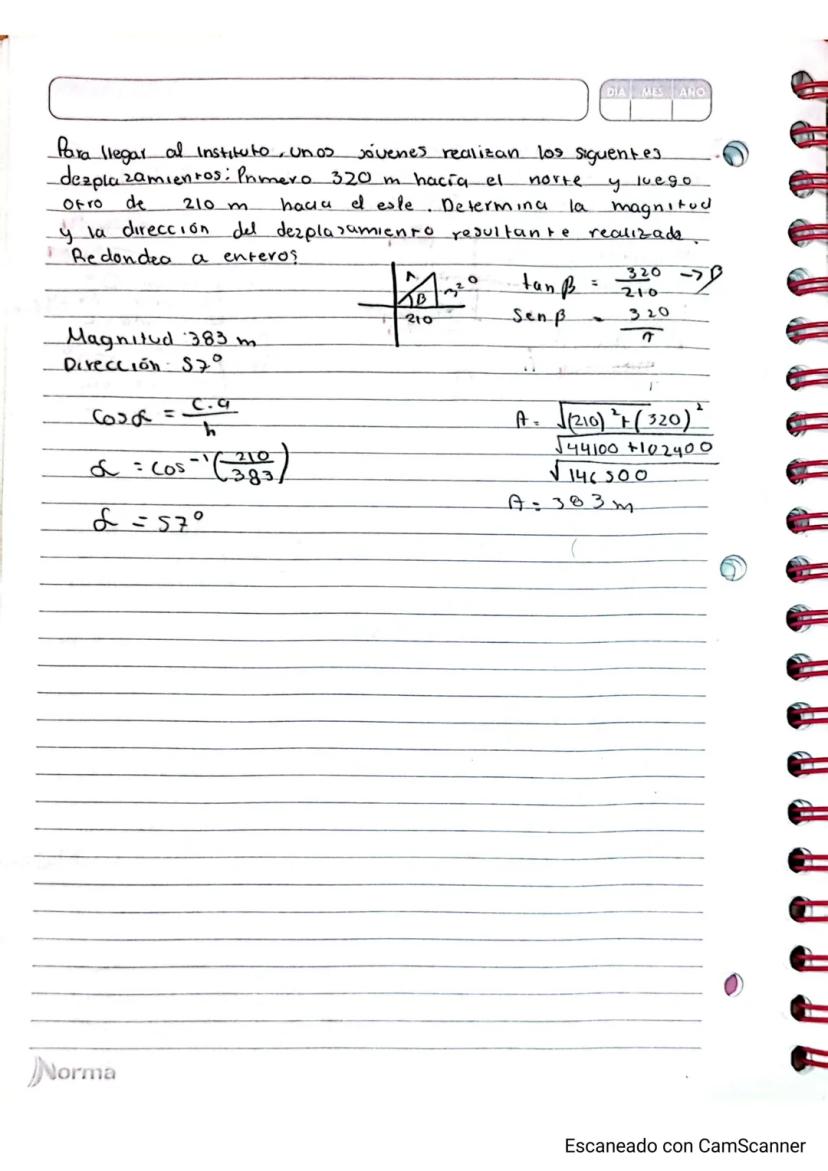 DÍA MES AÑO
Para llegar al Instituto, unos jóvenes realizan los siguentes
dezplazamientos: Primero 320 m hacía el norte y luego
otro de 210 m hacia el este. Determina la magnitud
y la dirección del dezplazamiento resultante realizado.
Redondea a enteros
r
β
320
210
tan β = 320/210 → β
Sen β = 320/r
Magnitud: 383 m
Dirección: 57°
Cos α = c.a/h
α = cos⁻¹(210/383)
α = 57°
A = √(210)² + (320)²
√44100 + 102400
√146500
A = 383 m
Norma
Escaneado con CamScanner